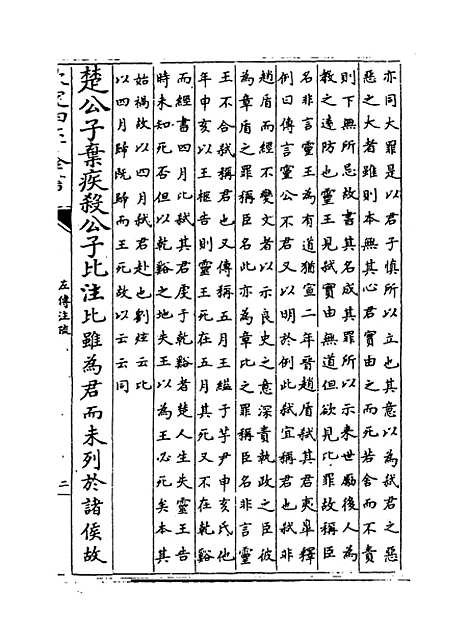 亦同大罪是以君子慎所以立也其意以為弑君之惡
惡之大者雖則本無其心君實由之而死若舍而不責
則下無所忌故書其名成其罪所以示来世勵後人為
教之遠防也靈王見弑實由無道但欲見比罪故稱臣
名非言靈王為有道猶宣二年晉趙盾弑其君夷臯釋
例曰傳言靈公不君又以明於例此弑宜稱君也弑非
趙盾而經不變文者以示良史之意深責執政之臣彼
為章盾之罪稱臣名此亦為章比之罪稱臣名非言靈
王不合弑稱君也又傳稱五月王縊于芋尹申亥氏他
年申亥以王柩告則靈王死在五月其死又不在乾谿
而經書四月比弑其君虔于乾谿者楚人生失靈王告
時未知死否但以乾谿之地失王以為王必死矣本其
始禍故以四月弑君赴也劉炫云比
以四月歸阮歸而王死故以云云同
楚公子棄疾殺公子比注比雖為君而未列於諸侯故
左傳注疏
二